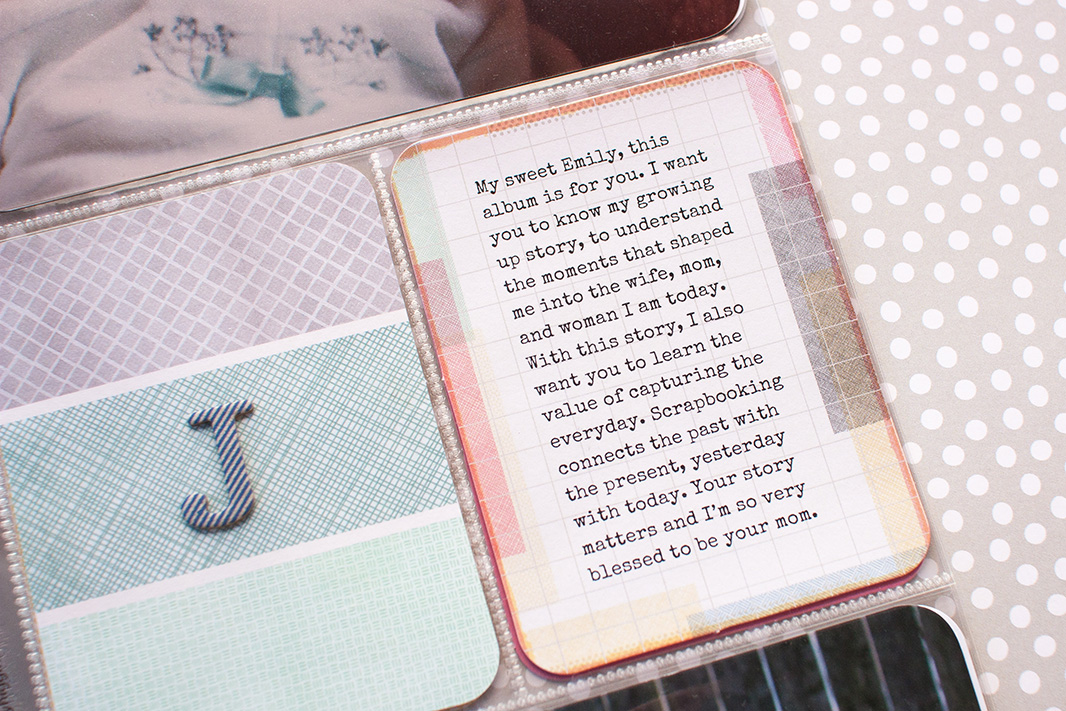 J
My sweet Emily, this
album is for you. I want
you to know my growing
up story, to understand
the moments that shaped
me into the wife, mom,
and woman I am today.
With this story, I also
want you to learn the
value of capturing the
everyday. Scrapbooking
connects the past with
the present, yesterday
with today. Your story
matters and I'm so very
blessed to be your mom.